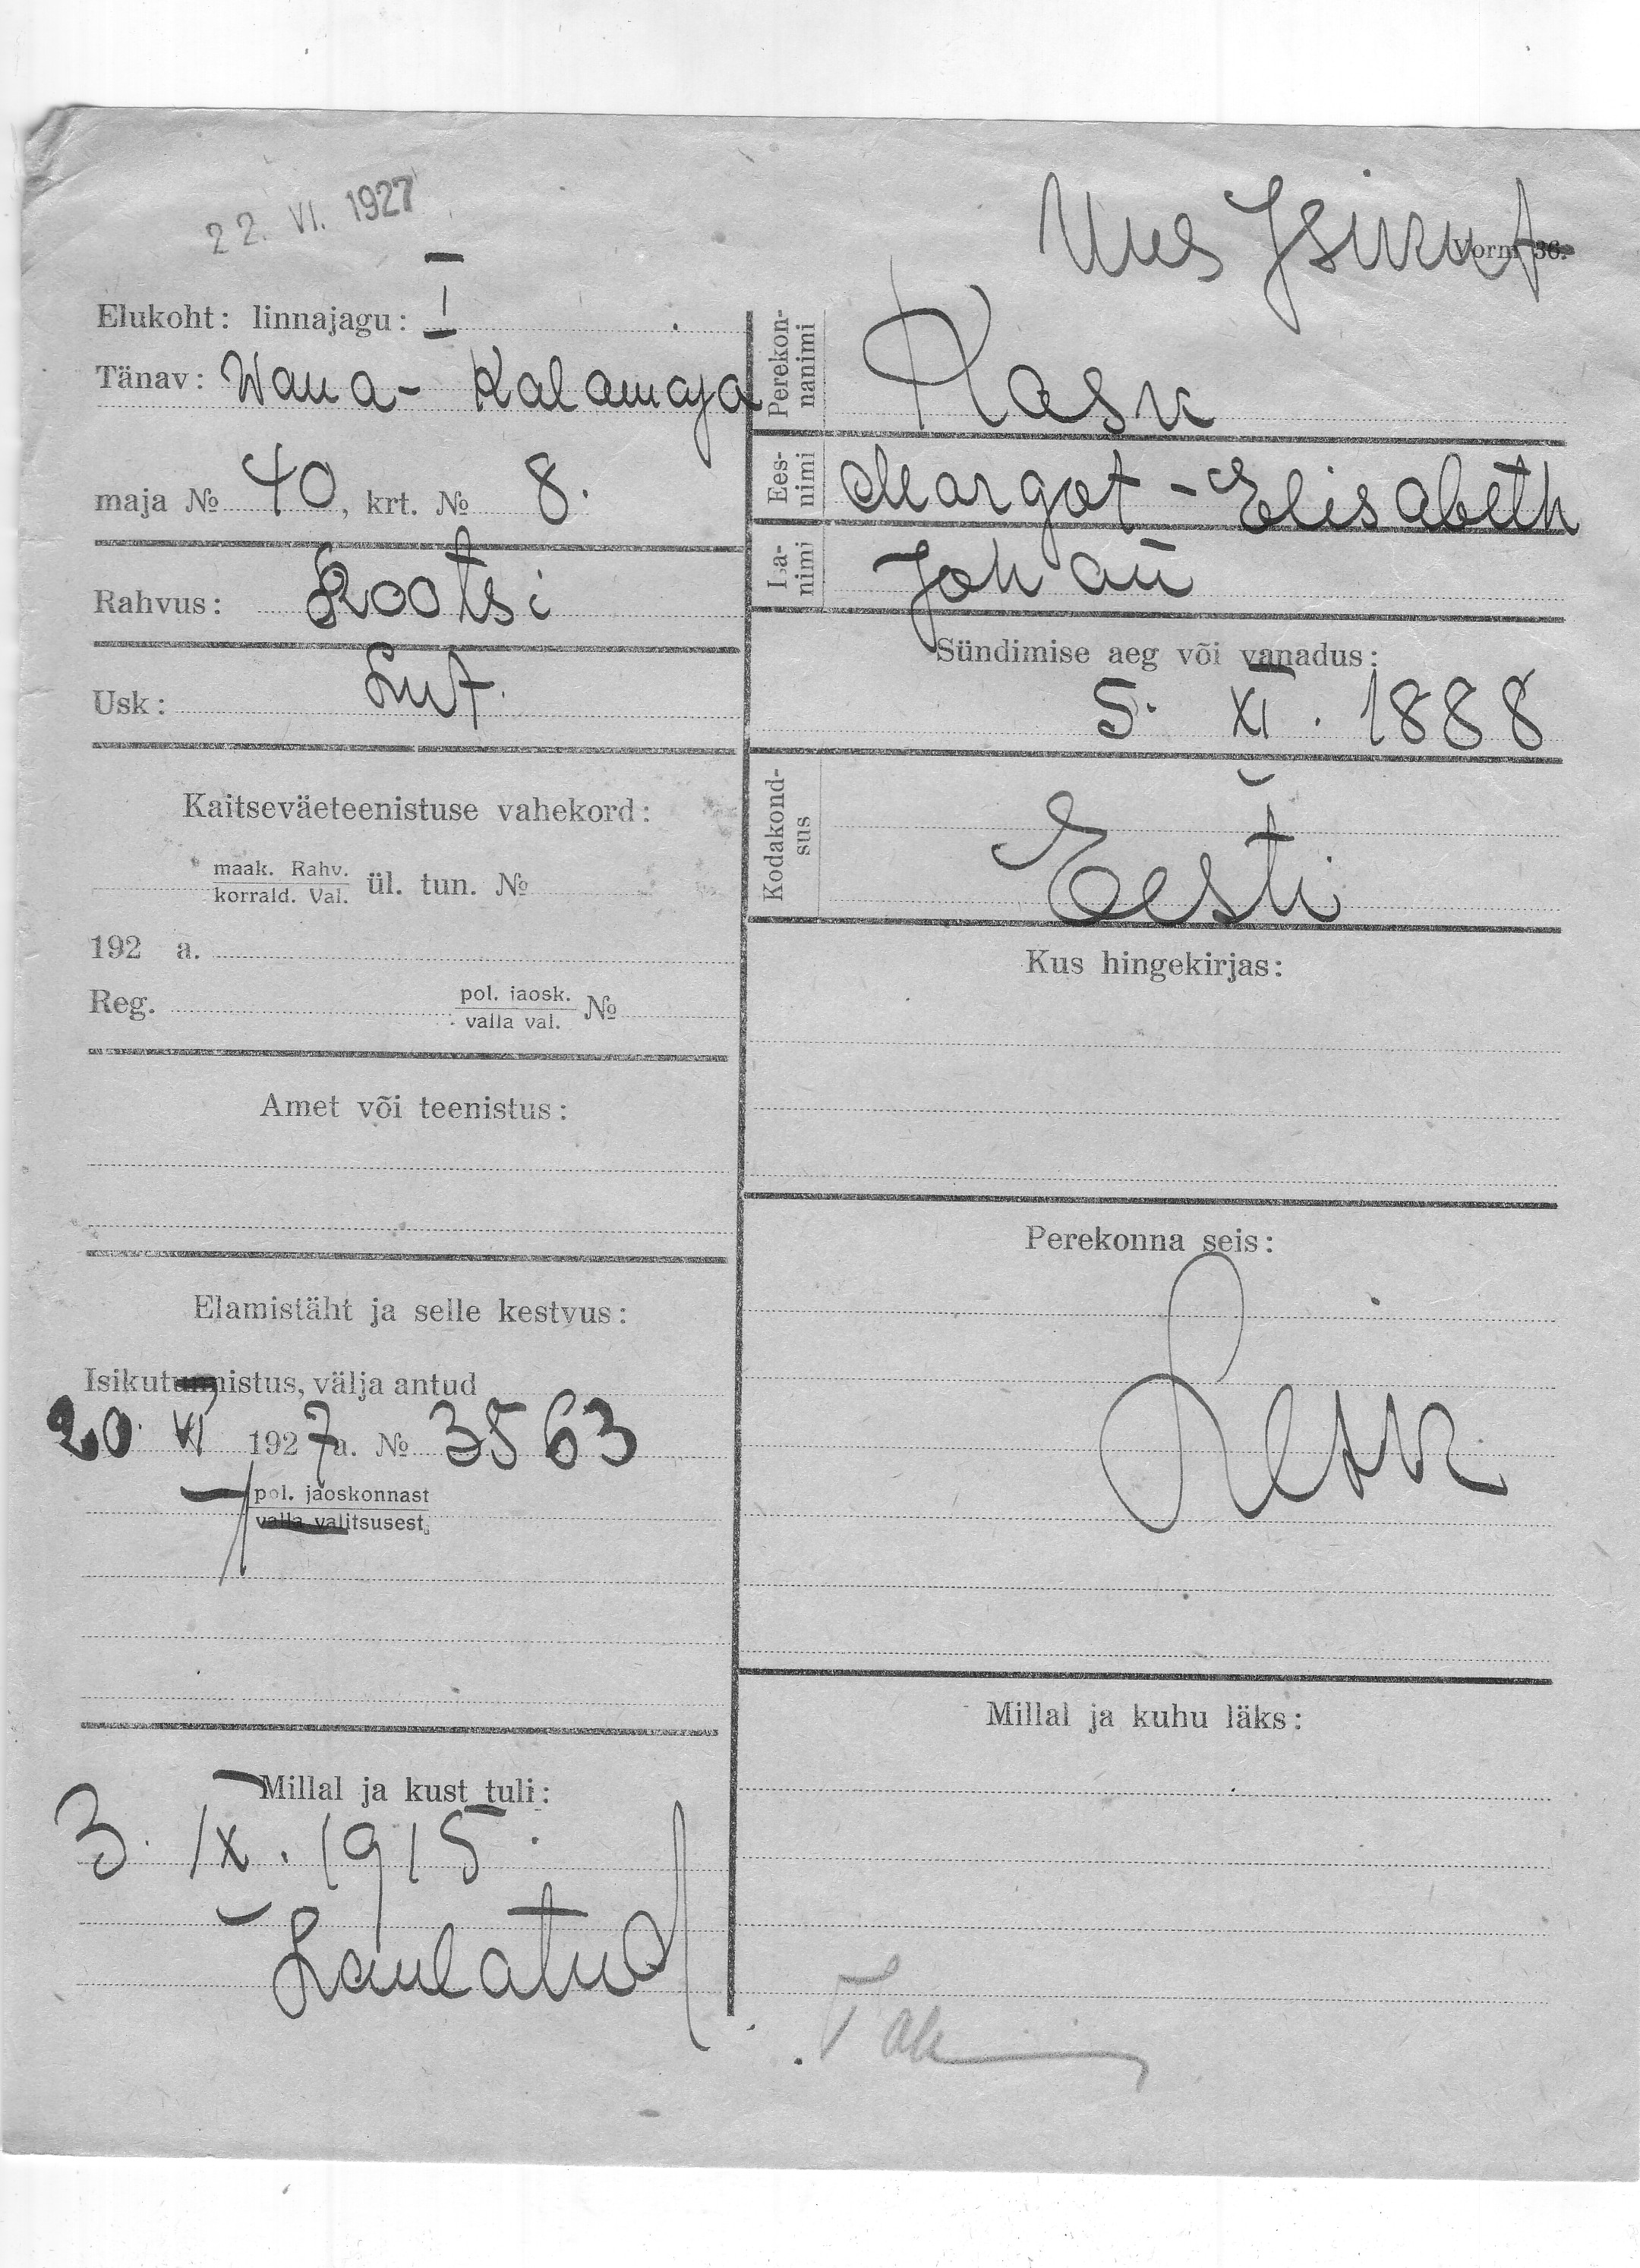 22. VI. 1927
Uus Isikut
Vorm 36.
Elukoht: linnajagu: I
Tänav: Wana-Kalamaja
maja № 40, krt. № 8.
Rahvus: Rootsi
Usk: Lut.
Kaitseväeteenistuse vahekord:
maak. Rahv.
korrald. Val. ül. tun. №
192 a.
Reg. pol. jaosk.
valla val. №
Amet või teenistus:
Elamistäht ja selle kestvus:
Isikutunnistus, välja antud
20. VI 1927 a. № 3563
pol. jaoskonnast
valla valitsusest
Millal ja kust tuli:
3. IX. 1915.
Laulatud
Perekon-
nanimi
Kask
Ees-
nimi
Margot-Elisabeth
Isa-
nimi
Johan̄
Sündimise aeg või vanadus:
5. XI. 1888
Kodakond-
sus
Eesti
Kus hingekirjas:
Perekonna seis:
Lesk
Millal ja kuhu läks: